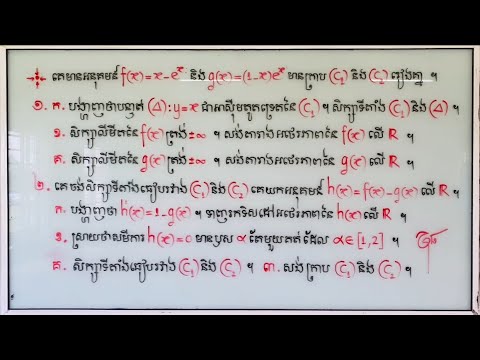 គេមានអនុគមន៍ f(x)=x-eˣ និង g(x)=(1-x)eˣ មានក្រាប (C₁) និង (C₂) រៀងគ្នា ។
១. ក. បង្ហាញថាបន្ទាត់ (Δ): y=x ជាអាស៊ីមតូតទ្រេតនៃ (C₁) ។ សិក្សាទីតាំង (C₁) និង (Δ) ។
ខ. សិក្សាលីមីតនៃ f(x) ត្រង់ ±∞ ។ សង់តារាងអថេរភាពនៃ f(x) លើ R ។
គ. សិក្សាលីមីតនៃ g(x) ត្រង់ ±∞ ។ សង់តារាងអថេរភាពនៃ g(x) លើ R ។
២. គេចង់សិក្សាទីតាំងធៀបរវាង (C₁) និង (C₂) គេយកអនុគមន៍ h(x)=f(x)-g(x) លើ R ។
ក. បង្ហាញថា h'(x)=1-g(x) ។ ទាញរកទិសដៅអថេរភាពនៃ h(x) លើ R ។
ខ. ស្រាយថាសមីការ h(x)=0 មានឫស α តែមួយគត់ដែល α∈[1,2] ។
គ. សិក្សាទីតាំងធៀបរវាង (C₁) និង (C₂) ។ ៣. សង់ក្រាប (C₁) និង (C₂) ។